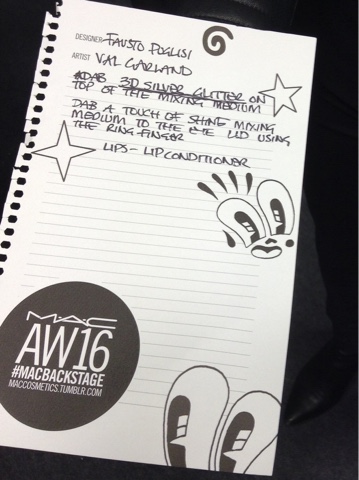 DESIGNER FAUSTO PUGLISI
ARTIST VAL GARLAND
DAB 3D SILVER GLITTER ON
TOP OF THE MIXING MEDIUM
DAB A TOUCH OF SHINE MIXING
MEDIUM TO THE EYE LID USING
THE RING FINGER
LIPS - LIP CONDITIONER
M·A·C
AW16
#MACBACKSTAGE
MACCOSMETICS.TUMBLR.COM